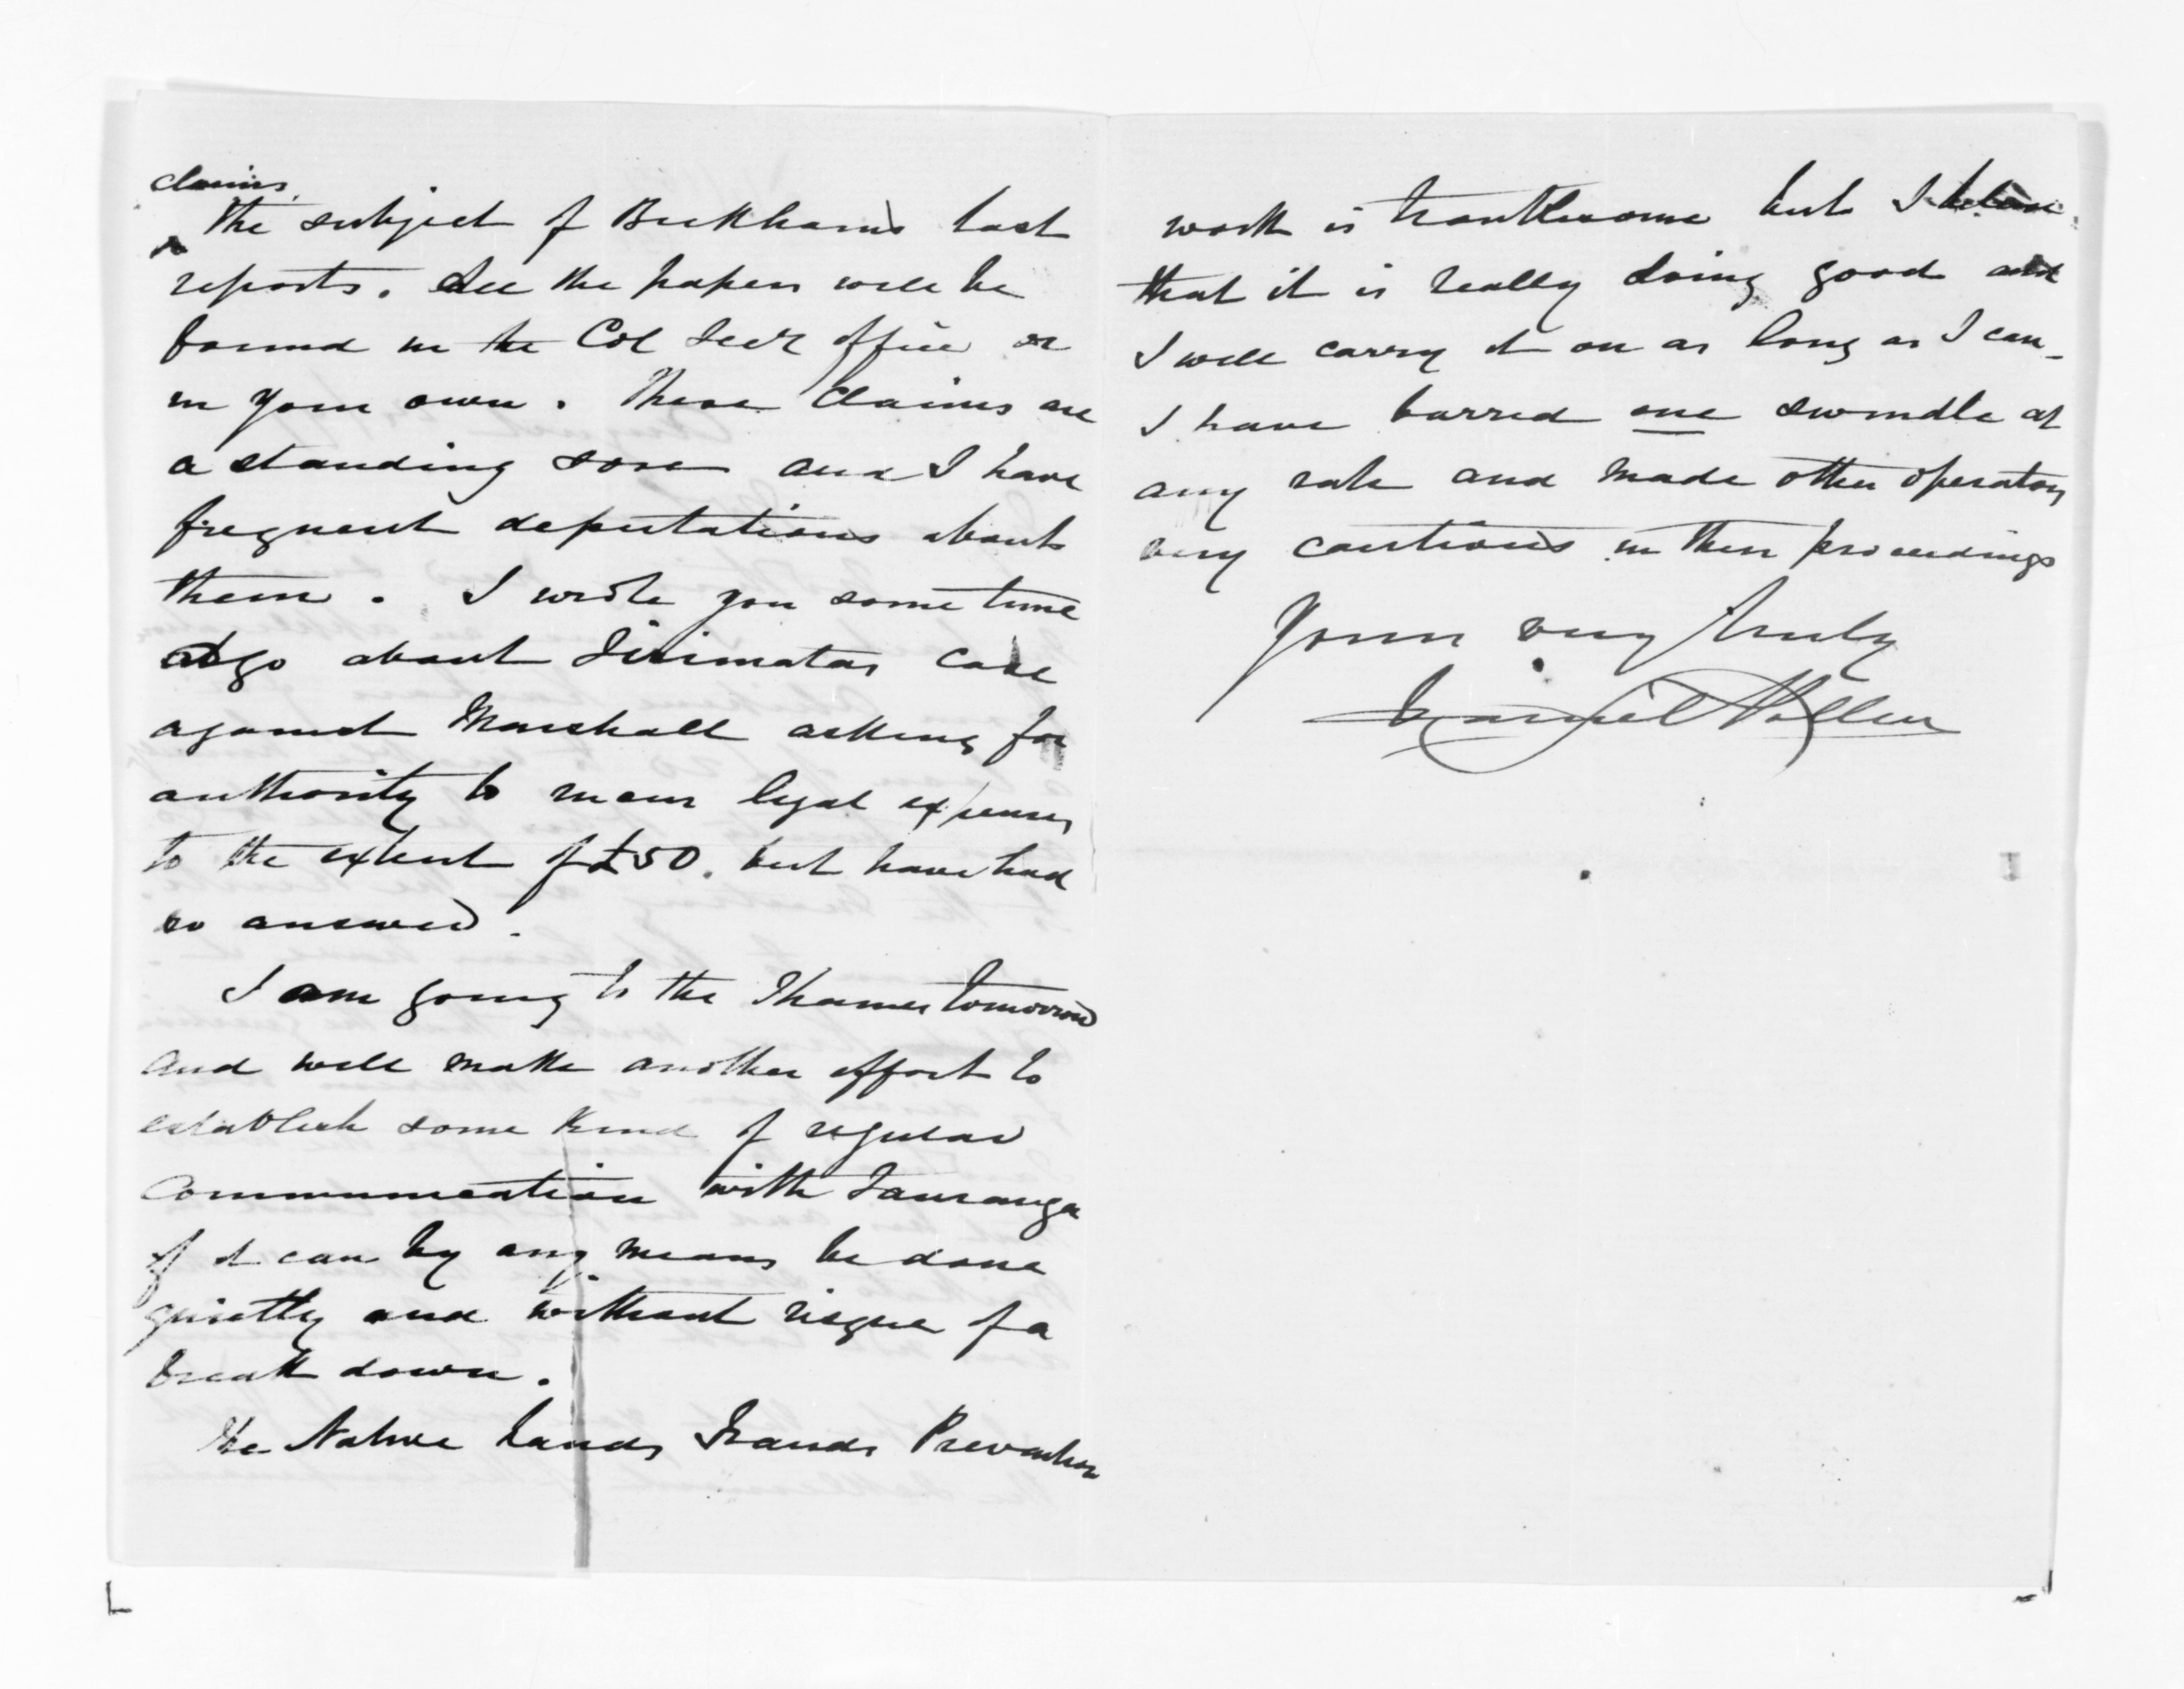 claims
the subject of Beckham's last
reports. All the papers will be
found in the Col Secr office or
in your own. These claims are
a standing sore and I have
frequent deputations about
them. I wrote you some time
ago about case
against Marshall asking for
authority to incur legal expenses
to the extent of £50. but have had
no answer.
I am going to the Thames tomorrow
and will make another effort to
establish some kind of regular
communication with Tauranga
if it can by any means be done
quietly and without risque of a
break down.
The Native Lands Frauds Prevention
work is troublesome but I believe
that it is really doing good and
I will carry it on as long as I can
I have burred one swindle at
any rate and made other operators
very cautious in their proceedings
Yours very truly
Daniel Pollen